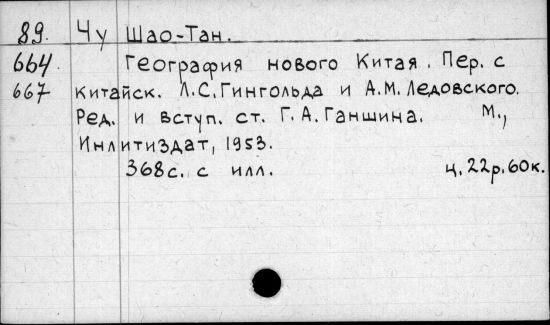 89. Чу Шао-Тан.
664. География нового Китая. Пер. с
667 китайск. Л.С.Гингольда и А.М.Ледовского.
Ред. и вступ. ст. Г.А.Ганшина. М.,
Инлитиздат, 1953.
368с. с илл. ц.22р.60к.